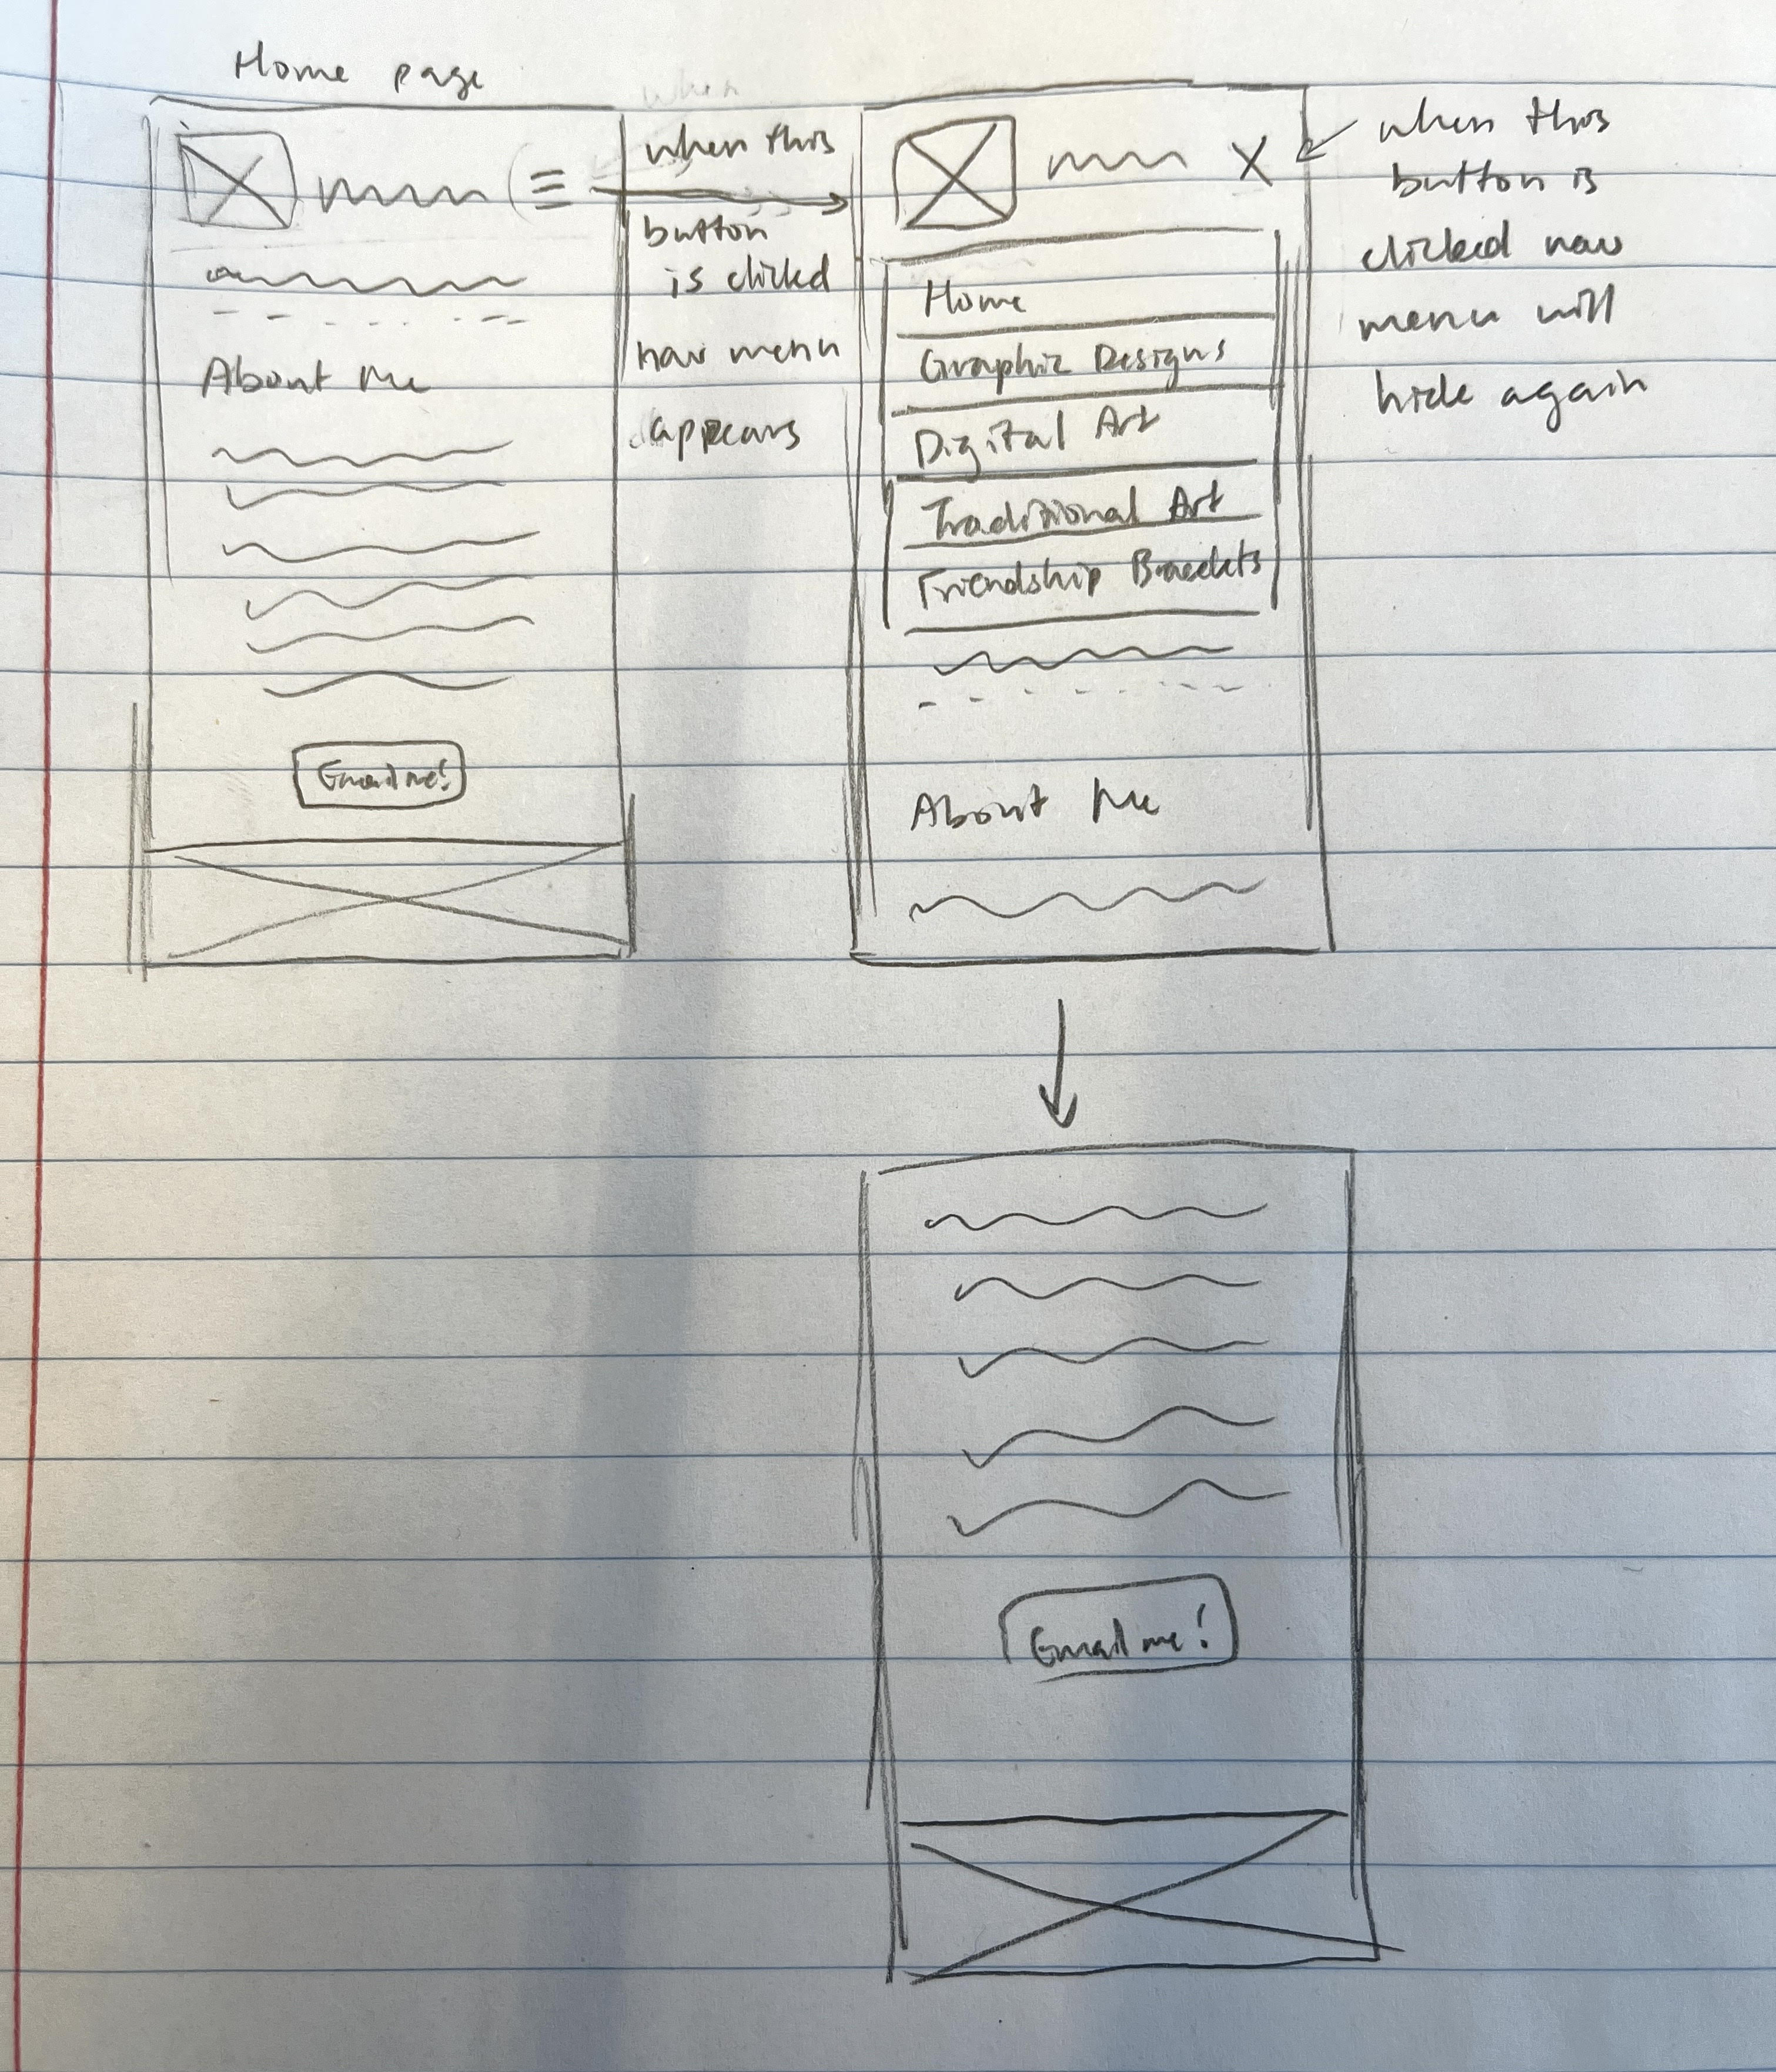 Home page
when
when this
button
is clicked
nav menu
appears
About Me
Email me!
X
Home
Graphic Designs
Digital Art
Traditional Art
Friendship Bracelets
About Me
when this
button is
clicked nav
menu will
hide again
Email me!